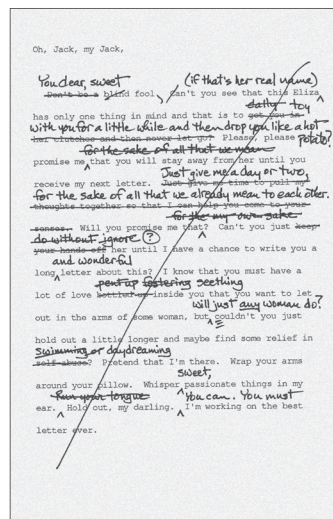 Oh, Jack, my Jack,
You dear, sweet (if that's her real name)
Don't be a blind fool. Can't you see that this Eliza
dally toy
has only one thing in mind and that is to get you in
with you for a little while and then drop you like a hot
her clutches and then never let go? Please, please potato?
for the sake of all that we mean
promise me that you will stay away from her until you
Just give me a day or two,
receive my next letter. Just give me time to pull my
for the sake of all that we already mean to each other.
thoughts together so that I can help you come to your
for the my own sake
senses. Will you promise me that? Can't you just keep
do without ignore (?)
your hands off her until I have a chance to write you a
and wonderful
long letter about this? I know that you must have a
pent up festering seething
lot of love bottled up inside you that you want to let
will just any woman do?
out in the arms of some woman, but couldn't you just
hold out a little longer and maybe find some relief in
swimming or daydreaming
self-abuse? Pretend that I'm there. Wrap your arms
sweet,
around your pillow. Whisper passionate things in my
Run your tongue You can. You must
ear. Hold out, my darling. I'm working on the best
letter ever.